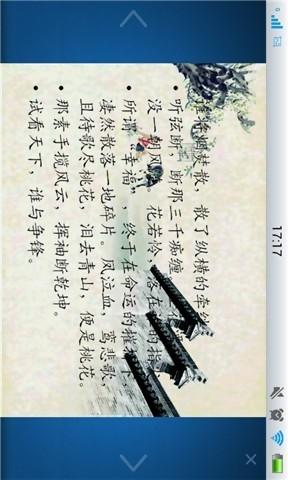 17:17
将烟焚散，散了纵横的牵
• 听弦断，断那三千痴缠
没一朝风 花若怜，落在 的指
• 所谓“幸福”，终于在命运的摧 下
凄然散落一地碎片。凤泣血，鸾悲歌，
且待歌尽桃花，泪去青山，便是桃花。
• 那素手揽风云，挥袖断乾坤。
• 试看天下，谁与争锋。